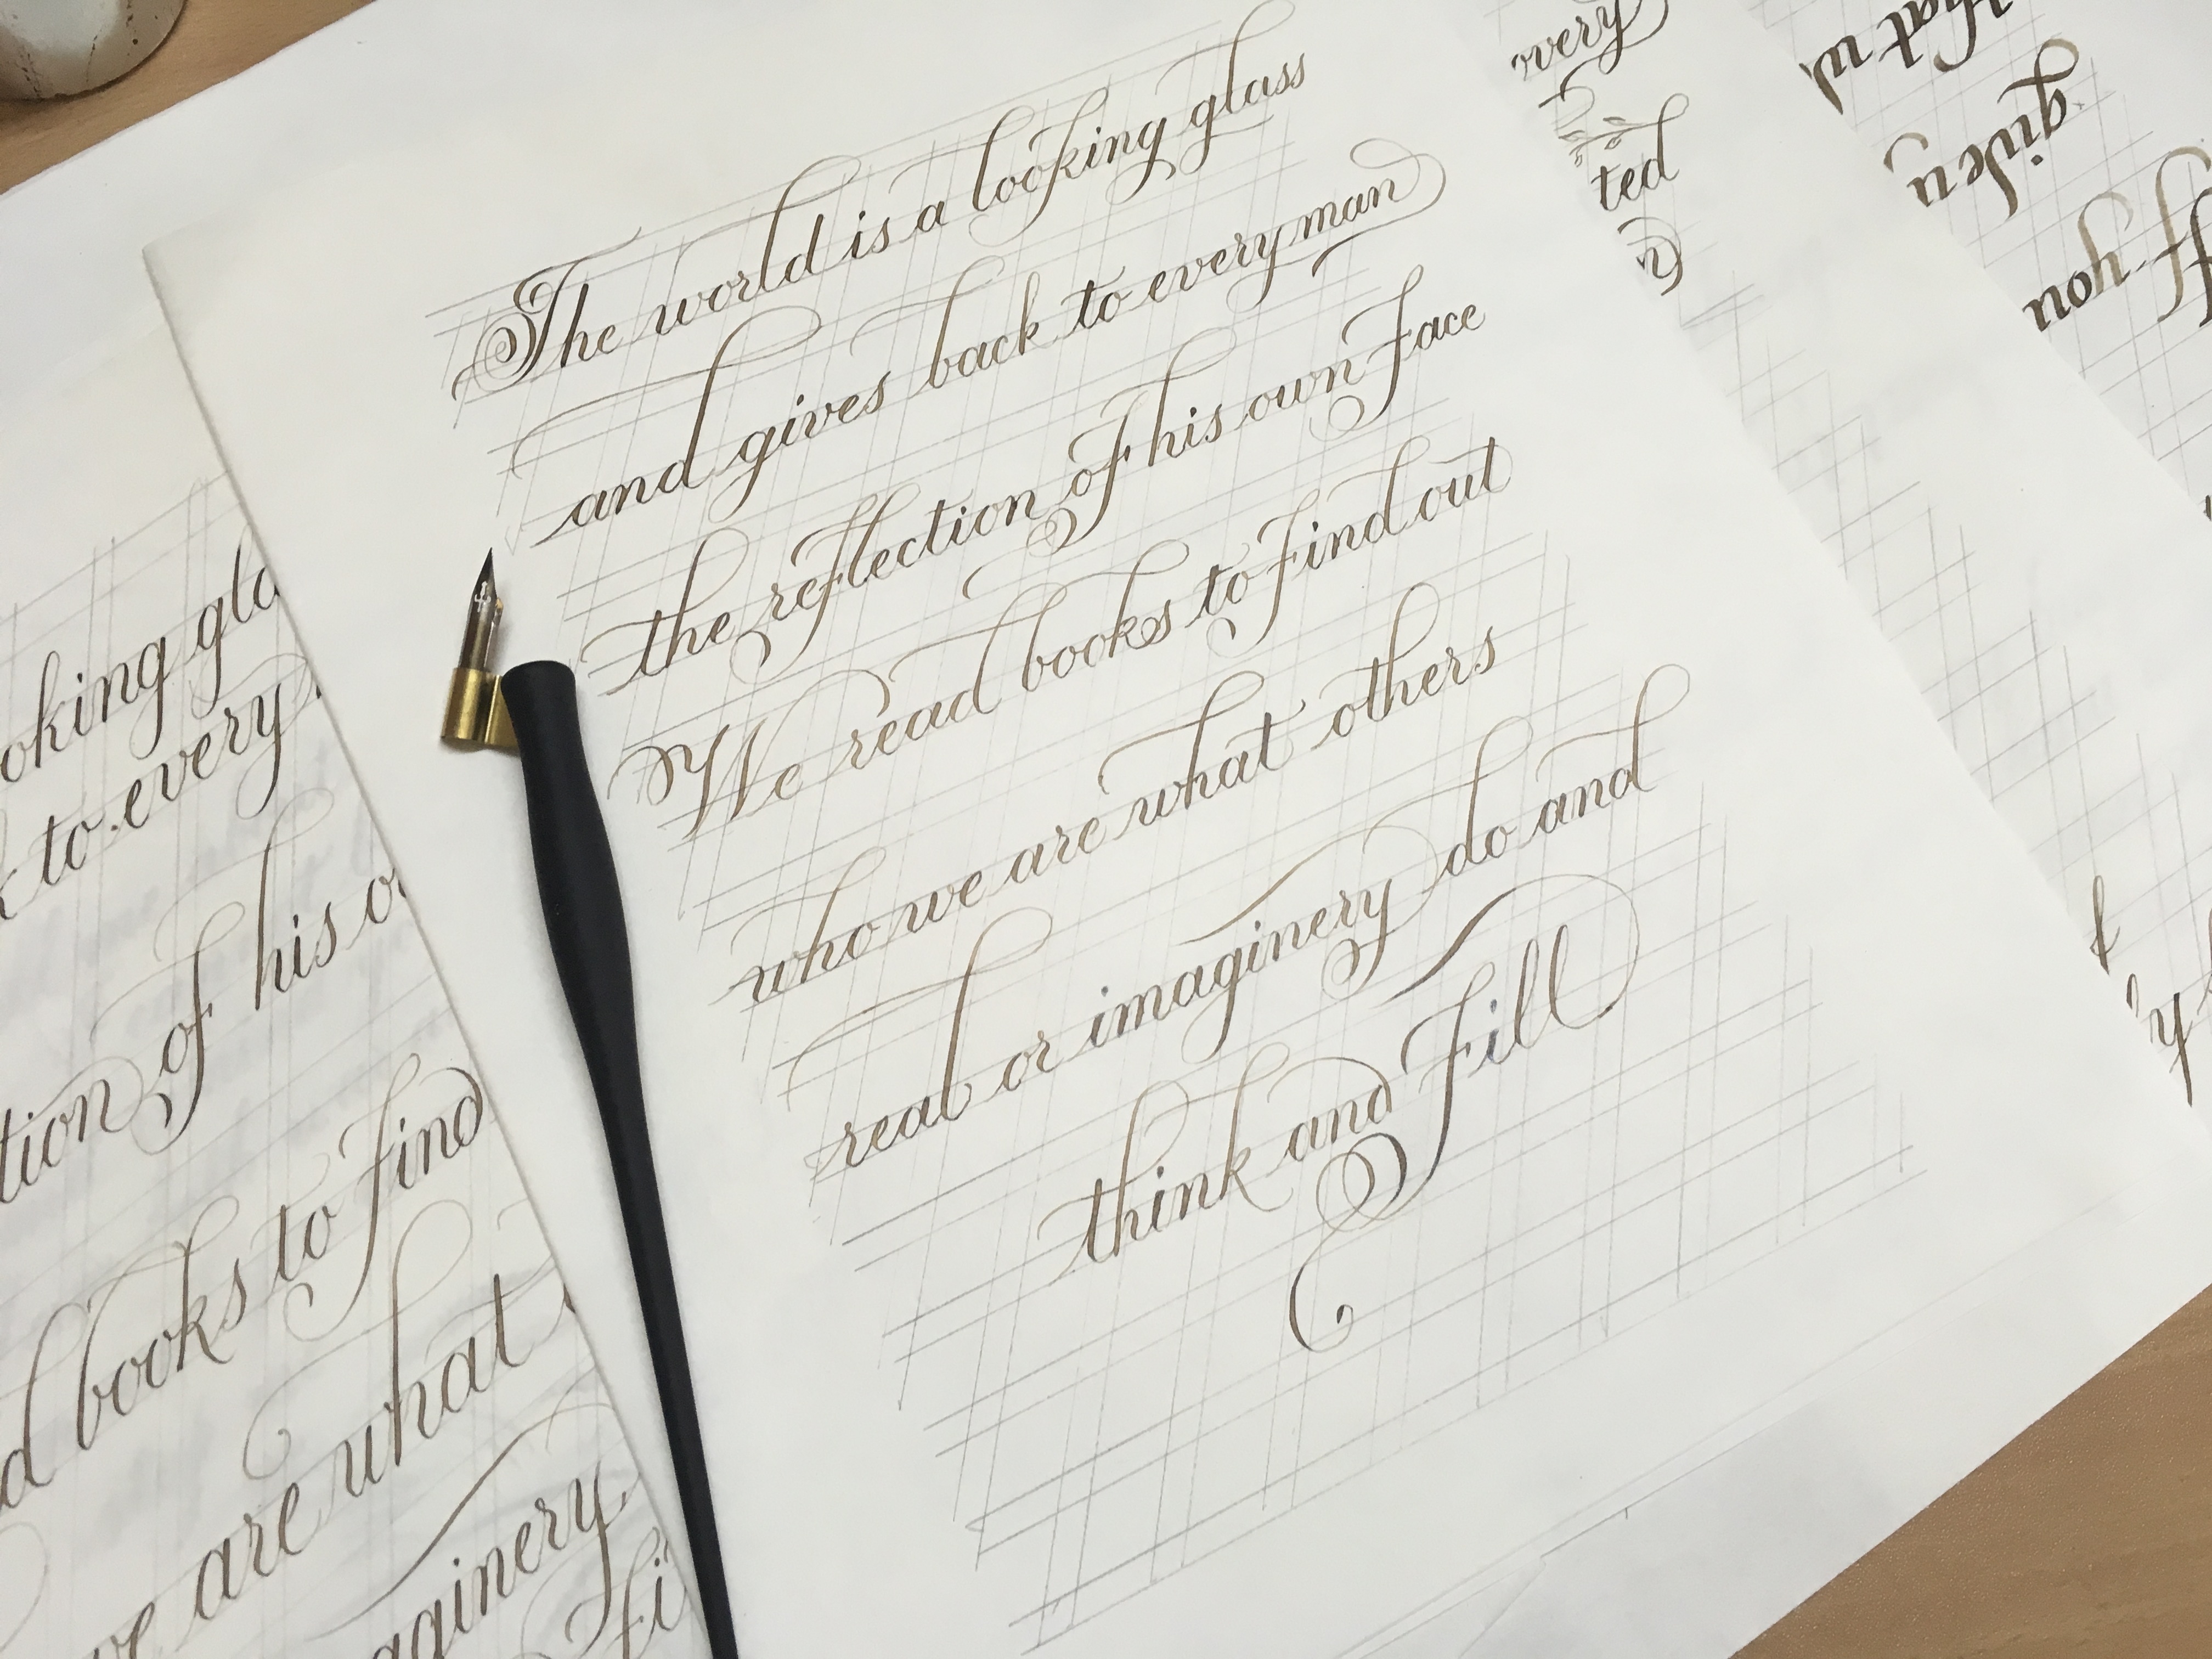 The world is a looking glass
and gives back to every man
the reflection of his own face
We read books to find out
who we are what others
real or imaginery do and
think and fill
oking gla
to every
of his o
tion
books to find
we are what
aginery
fi
very
ted
that w
given
If you